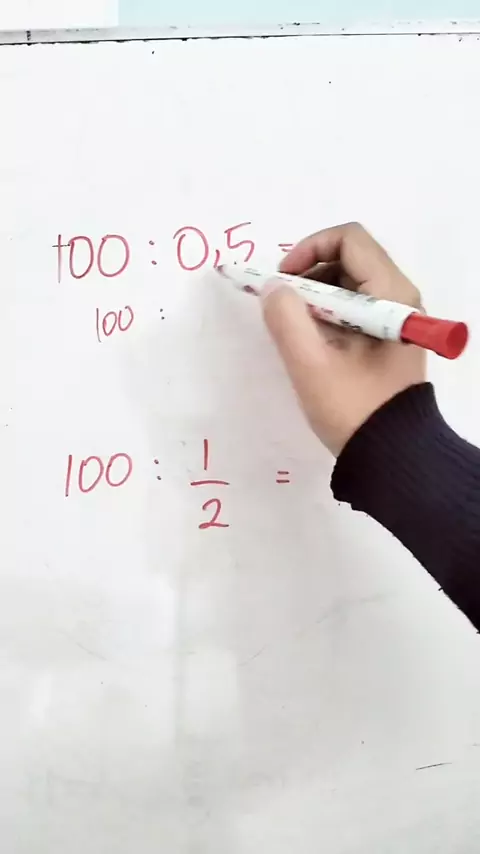 100 : 0,5 =
100 :
100 : 1/2 =